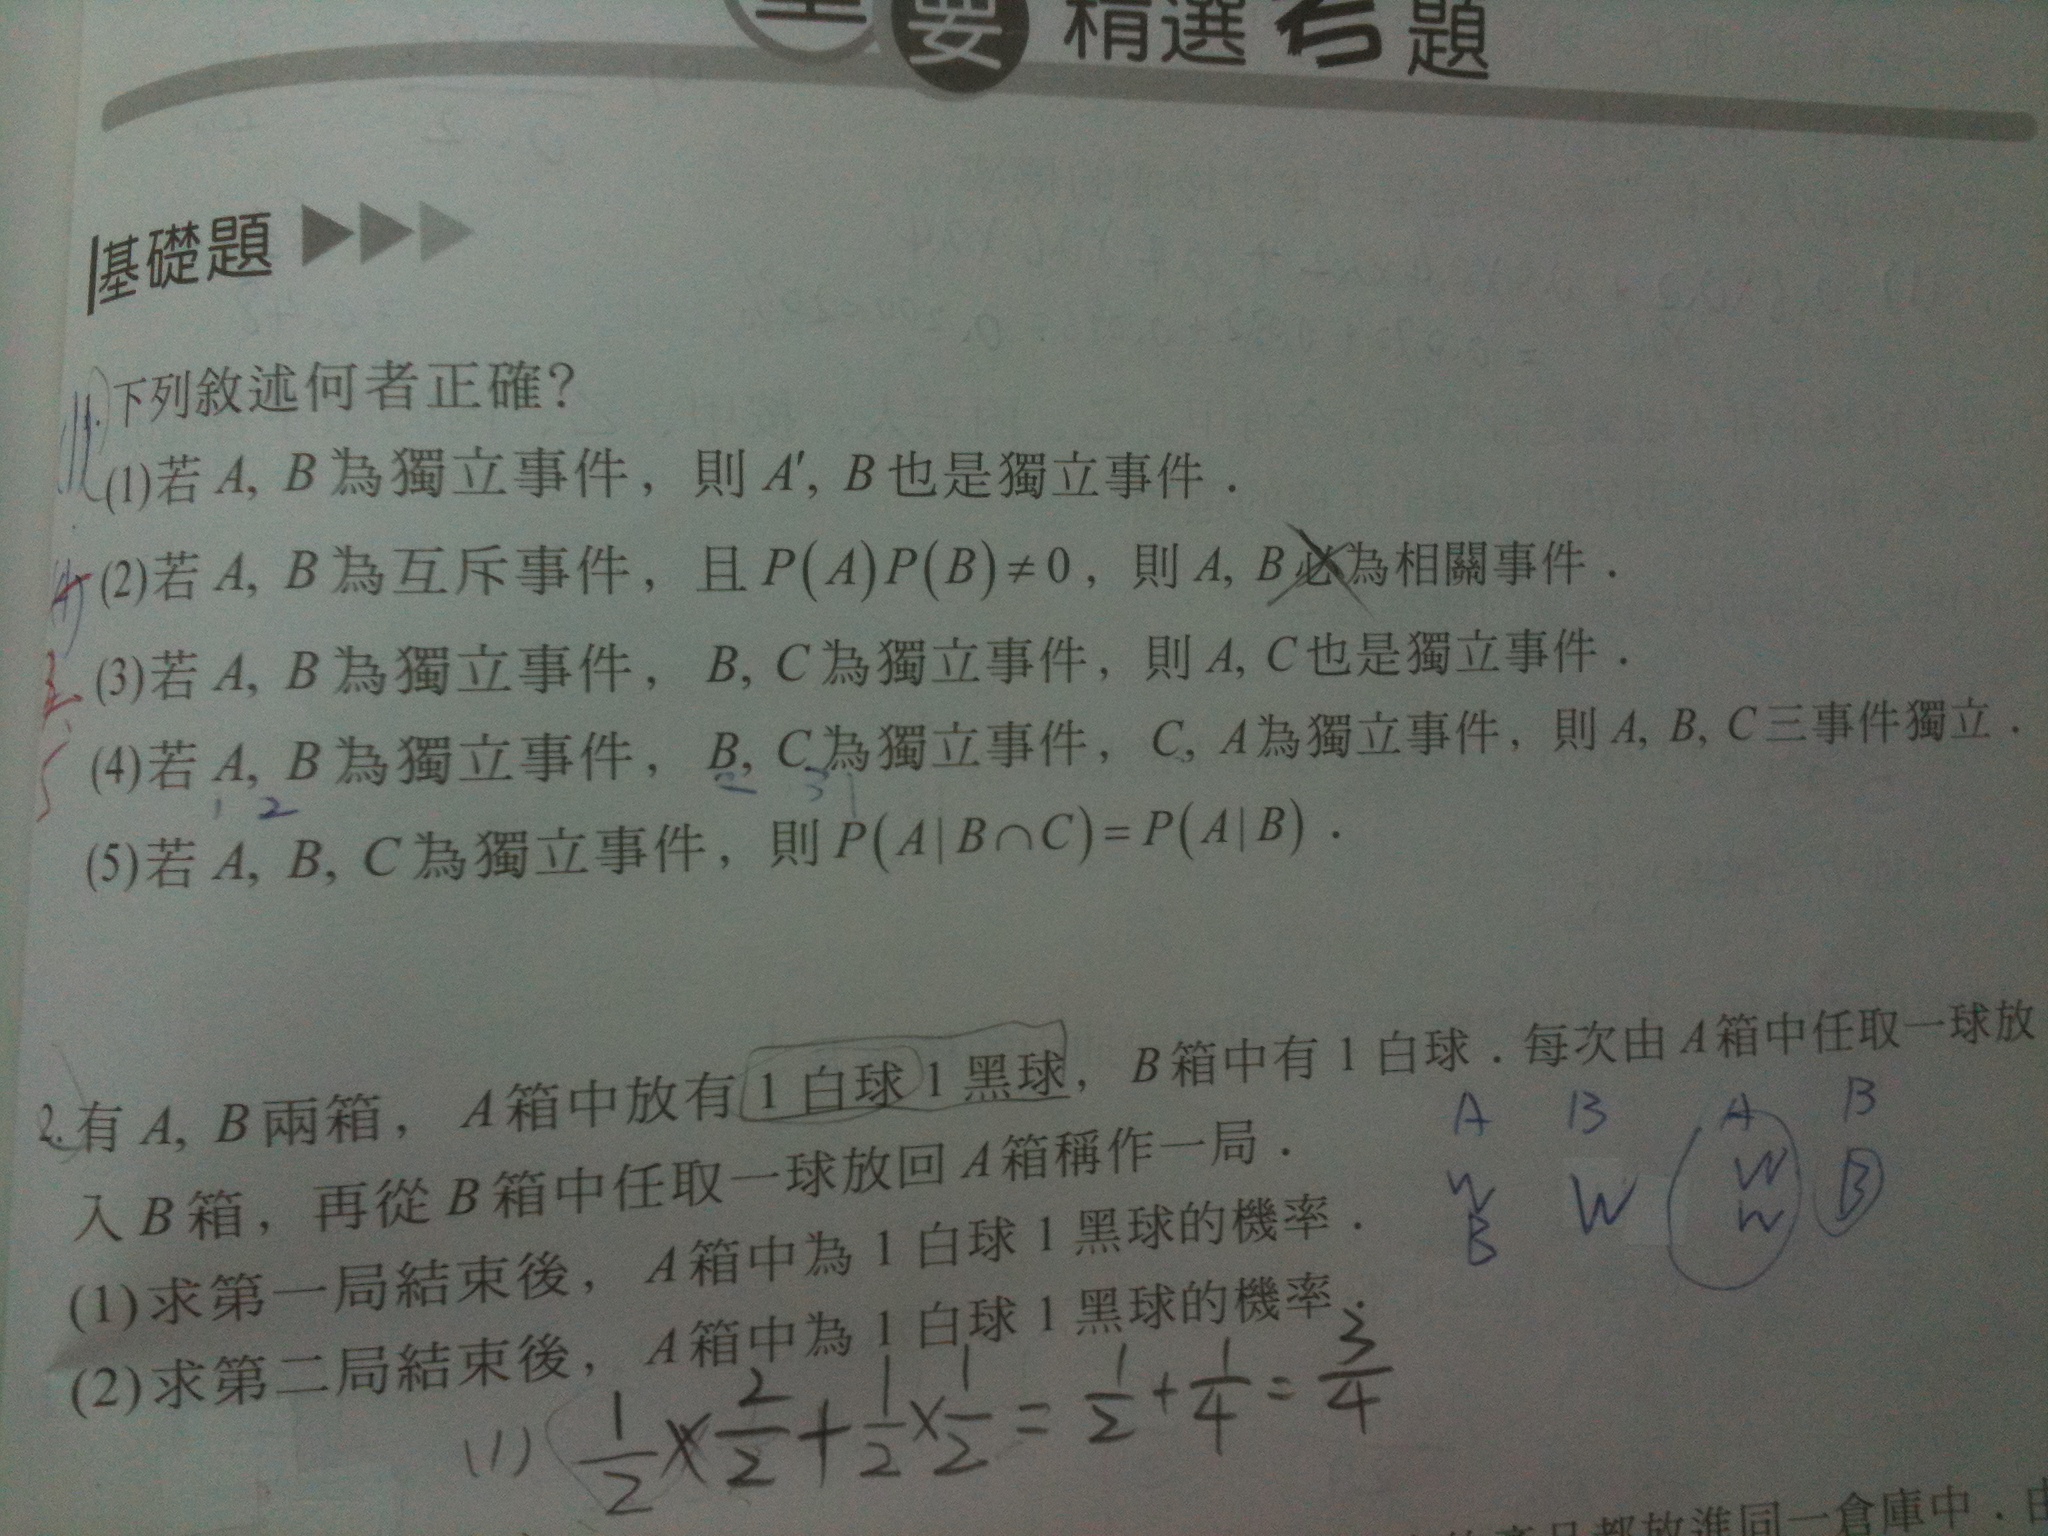 要精選考題
基礎題
1.下列敘述何者正確?
(1)若 A, B 為獨立事件，則 A', B 也是獨立事件．
(2)若 A, B 為互斥事件，且 P(A)P(B)≠0，則 A, B 必為相關事件．
(3)若 A, B 為獨立事件，B, C 為獨立事件，則 A, C 也是獨立事件．
(4)若 A, B 為獨立事件，B, C 為獨立事件，C, A 為獨立事件，則 A, B, C 三事件獨立．
1 2 2 3 1
(5)若 A, B, C 為獨立事件，則 P(A|B∩C)=P(A|B)．
2.有 A, B 兩箱，A 箱中放有 1 白球 1 黑球，B 箱中有 1 白球．每次由 A 箱中任取一球放
入 B 箱，再從 B 箱中任取一球放回 A 箱稱作一局．
A B A B
W W W B
B W
(1)求第一局結束後，A 箱中為 1 白球 1 黑球的機率．
(2)求第二局結束後，A 箱中為 1 白球 1 黑球的機率．
(1) 1/2 × 2/2 + 1/2 × 1/2 = 1/2 + 1/4 = 3/4
都放進同一倉庫中．由